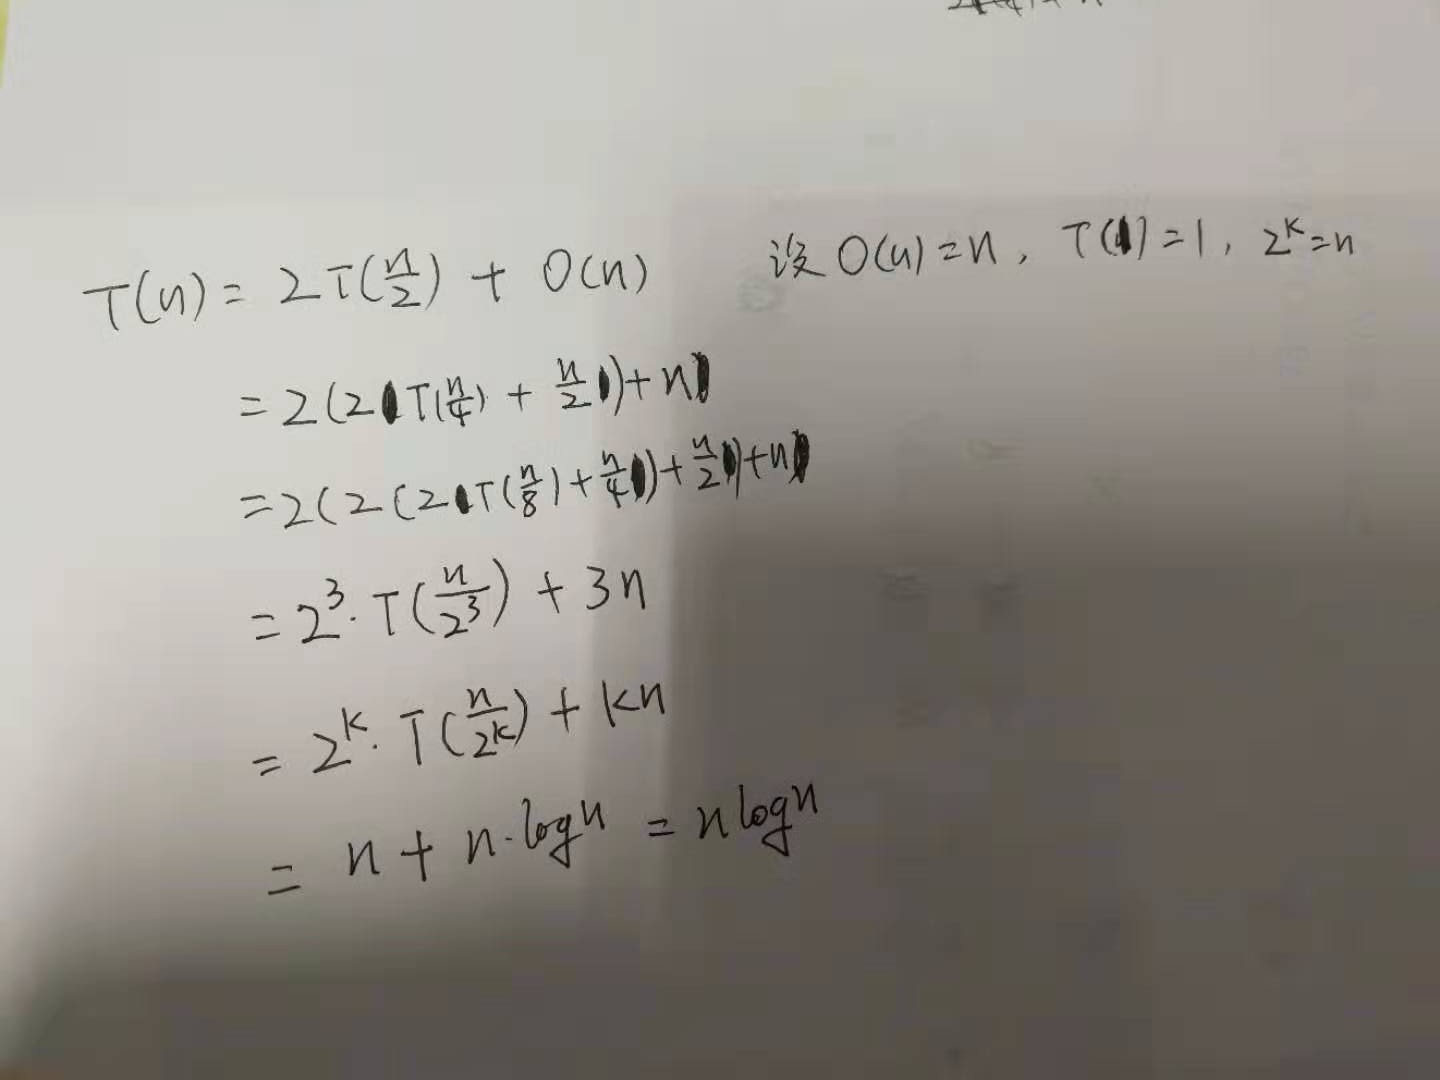 T(n) = 2T(n/2) + O(n) 设 O(n)=n, T(1)=1, 2^k=n
= 2(2T(n/4) + n/2)+n
= 2(2(2T(n/8)+n/4)+n/2)+n
= 2^3·T(n/2^3) + 3n
= 2^k·T(n/2^k) + kn
= n + n·logn = nlogn